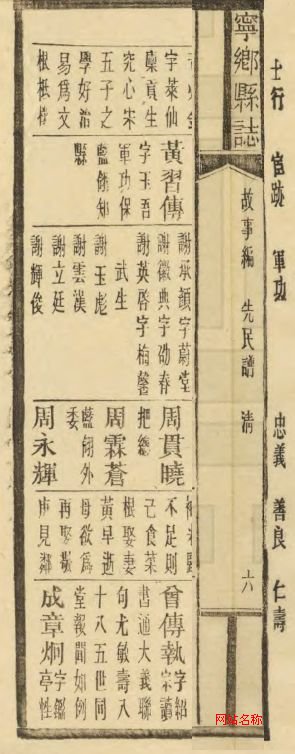 士行 宦跡 軍功 忠義 善良 仁壽
寧鄉縣誌
故事編 先民譜 清 六
字萊仙
廩貢生
究心宋
五子之
學好治
易爲文
根柢
黃習傳
字玉吾
軍功保
藍翎知
縣
謝承頫字蔚堂
謝徽典字劭春
謝英啓字梅馨
武生
謝玉彪
謝雲漢
謝立廷
謝輝俊
周貫曉
把總
周霖蒼
藍翎外
委
周永輝
不足則
己食菜
根娶妻
黃早逝
母欲爲
再娶
見鄰
曾傳執字紹
宗讀
書通大義聯
句尤敏壽八
十八五世同
堂報聞如例
成章炯字鑑
亭性
网站名称